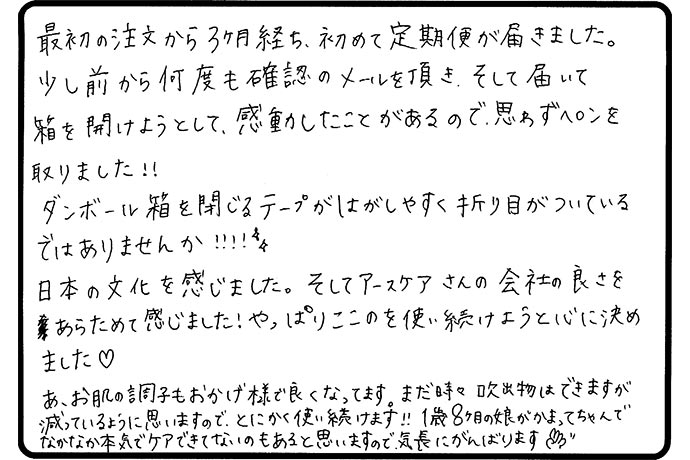 最初の注文から3ヶ月経ち、初めて定期便が届きました。
少し前から何度も確認のメールを頂き、そして届いて
箱を開けようとして、感動したことがあるので、思わずペンを
取りました!!
ダンボール箱を閉じるテープがはがしやすく折り目がついている
ではありませんか!!!!
日本の文化を感じました。そしてアースケアさんの会社の良さを
あらためて感じました!やっぱりここのを使い続けようと心に決め
ました♡
あ、お肌の調子もおかげ様で良くなってます。まだ時々吹出物はできますが
減っているように思いますので、とにかく使い続けます!!1歳8ヶ月の娘がかまってちゃんで
なかなか本気でケアできてないのもあると思いますので、気長にがんばります